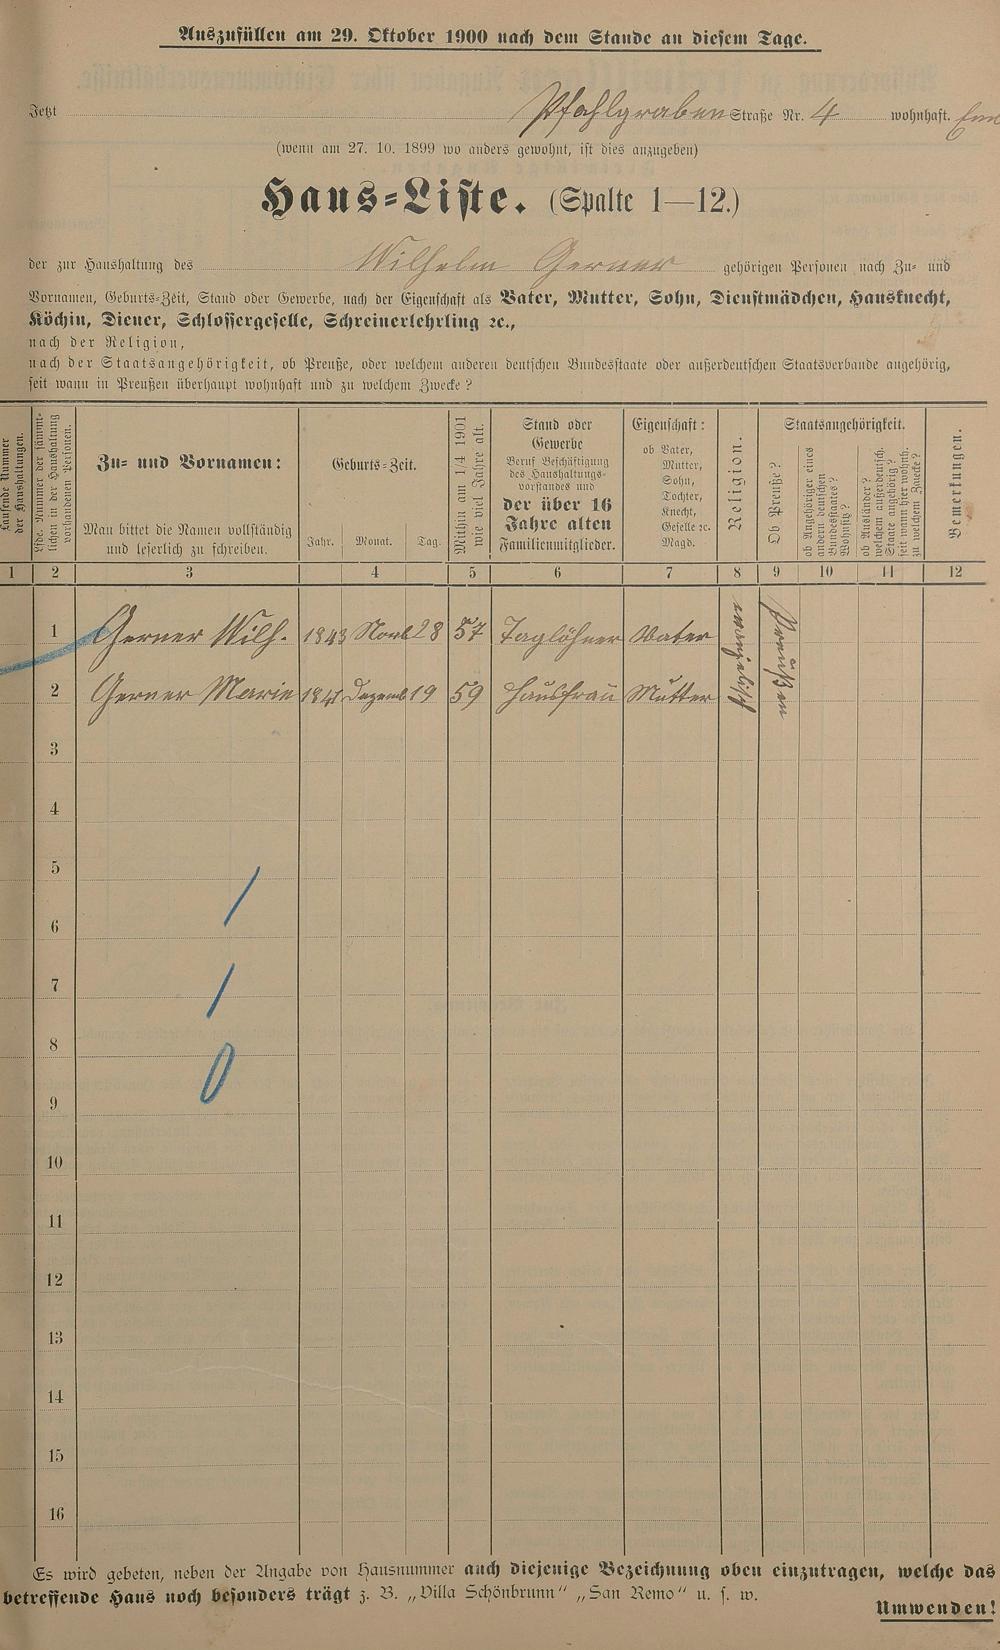 Auszufüllen am 29. Oktober 1900 nach dem Stande an diesem Tage.
Jetzt Pfahlgraben Straße Nr. 4 wohnhaft.
(wenn am 27. 10. 1899 wo anders gewohnt, ist dies anzugeben)
Haus-Liste. (Spalte 1—12.)
der zur Haushaltung des Wilhelm Gerner gehörigen Personen nach Zu- und
Vornamen, Geburts-Zeit, Stand oder Gewerbe, nach der Eigenschaft als Vater, Mutter, Sohn, Dienstmädchen, Hausknecht,
Köchin, Diener, Schlossergeselle, Schreinerlehrling ꝛc.,
nach der Religion,
nach der Staatsangehörigkeit, ob Preuße, oder welchem anderen deutschen Bundesstaate oder außerdeutschen Staatsverbande angehörig,
seit wann in Preußen überhaupt wohnhaft und zu welchem Zwecke?
Laufende Nummer
der Haushaltungen.
Lfde. Nummer der sämmt-
lichen in der Haushaltung
vorhandenen Personen.
Zu- und Vornamen:
Man bittet die Namen vollständig
und leserlich zu schreiben.
Geburts-Zeit.
Jahr. Monat. Tag.
Mithin am 1/4 1901
wie viel Jahre alt.
Stand oder
Gewerbe
Beruf Beschäftigung
des Haushaltungs-
vorstandes und
der über 16
Jahre alten
Familienmitglieder.
Eigenschaft:
ob Vater,
Mutter,
Sohn,
Tochter,
Knecht,
Geselle ꝛc.
Magd.
Religion.
Staatsangehörigkeit.
Ob Preuße?
ob Angehöriger eines
andern deutschen
Bundesstaates?
Wohnsitz?
ob Ausländer?
welchem außerdeutsch.
Staate angehörig?
seit wann hier wohnh.
zu welchem Zwecke?
Bemerkungen.
1 2 3 4 5 6 7 8 9 10 11 12
1 Gerner Wilh. 1843 Novb 28 57 Taglöhner Vater evangelisch Preußen
2 Gerner Marie 1841 Dezemb 19 59 Hausfrau Mutter
3
4
5
6
7
8
9
10
11
12
13
14
15
16
Es wird gebeten, neben der Angabe von Hausnummer auch diejenige Bezeichnung oben einzutragen, welche das
betreffende Haus noch besonders trägt z. B. „Villa Schönbrunn" „San Remo" u. s. w.
Umwenden!